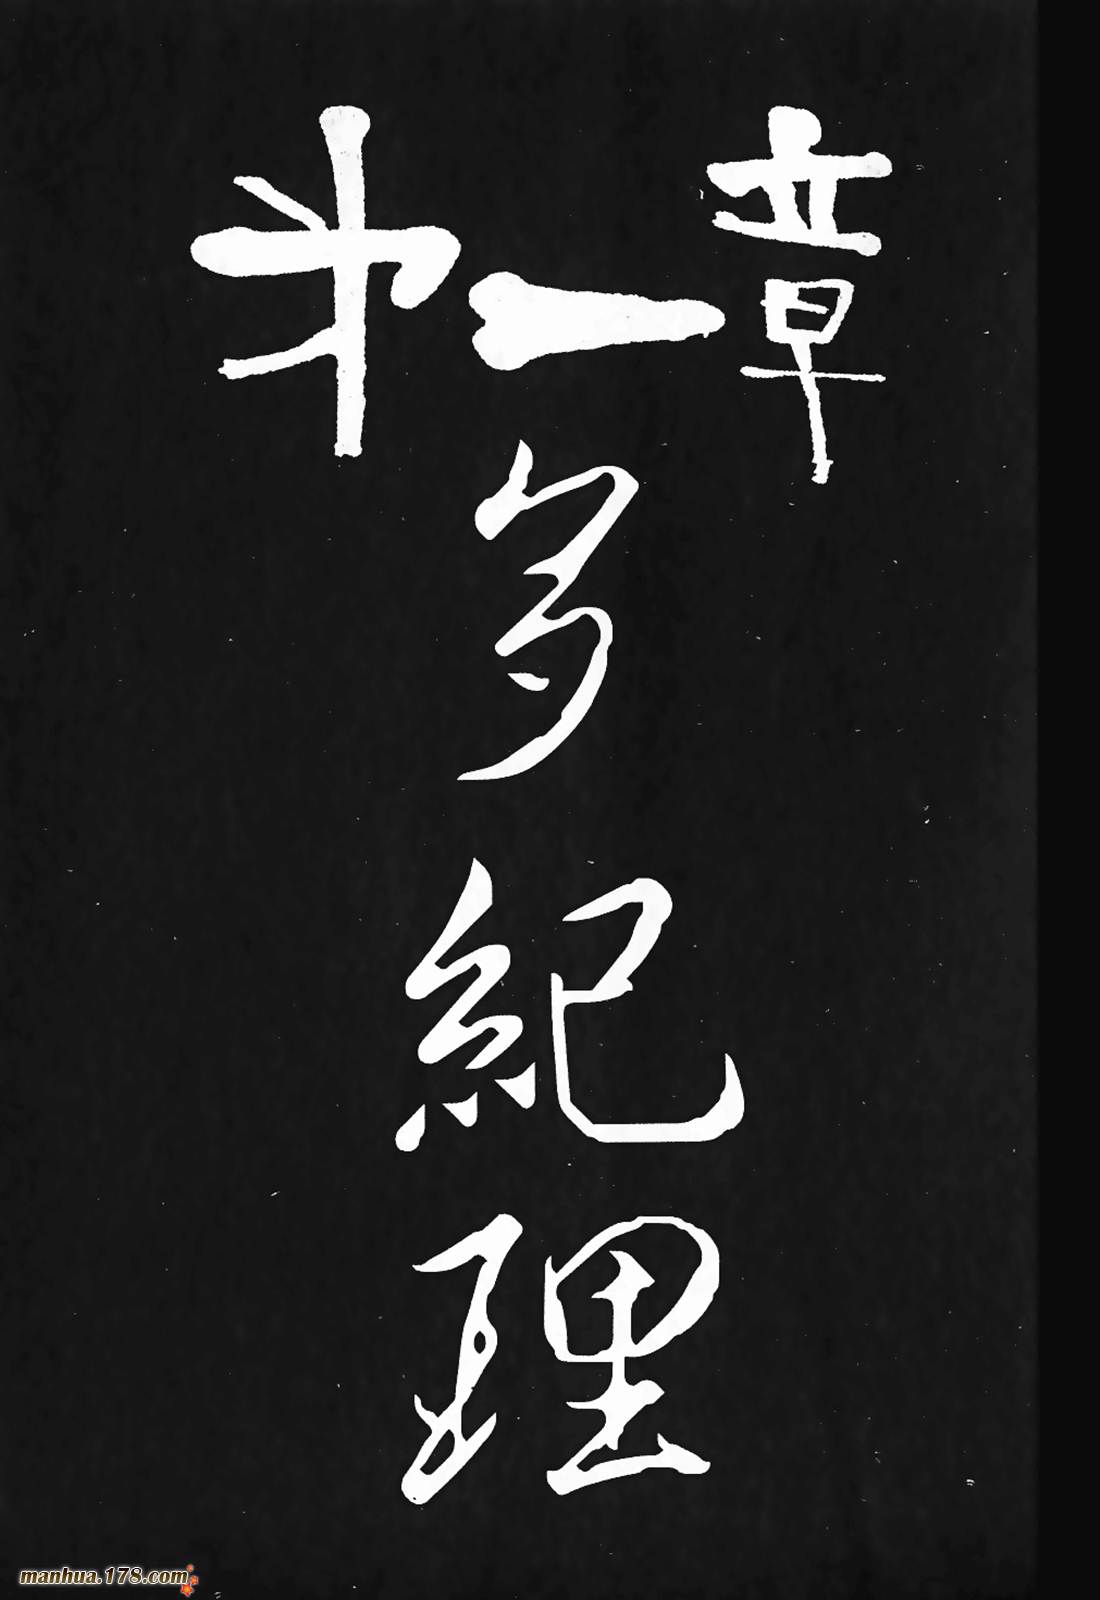 第一章
多紀理
manhua.178.com